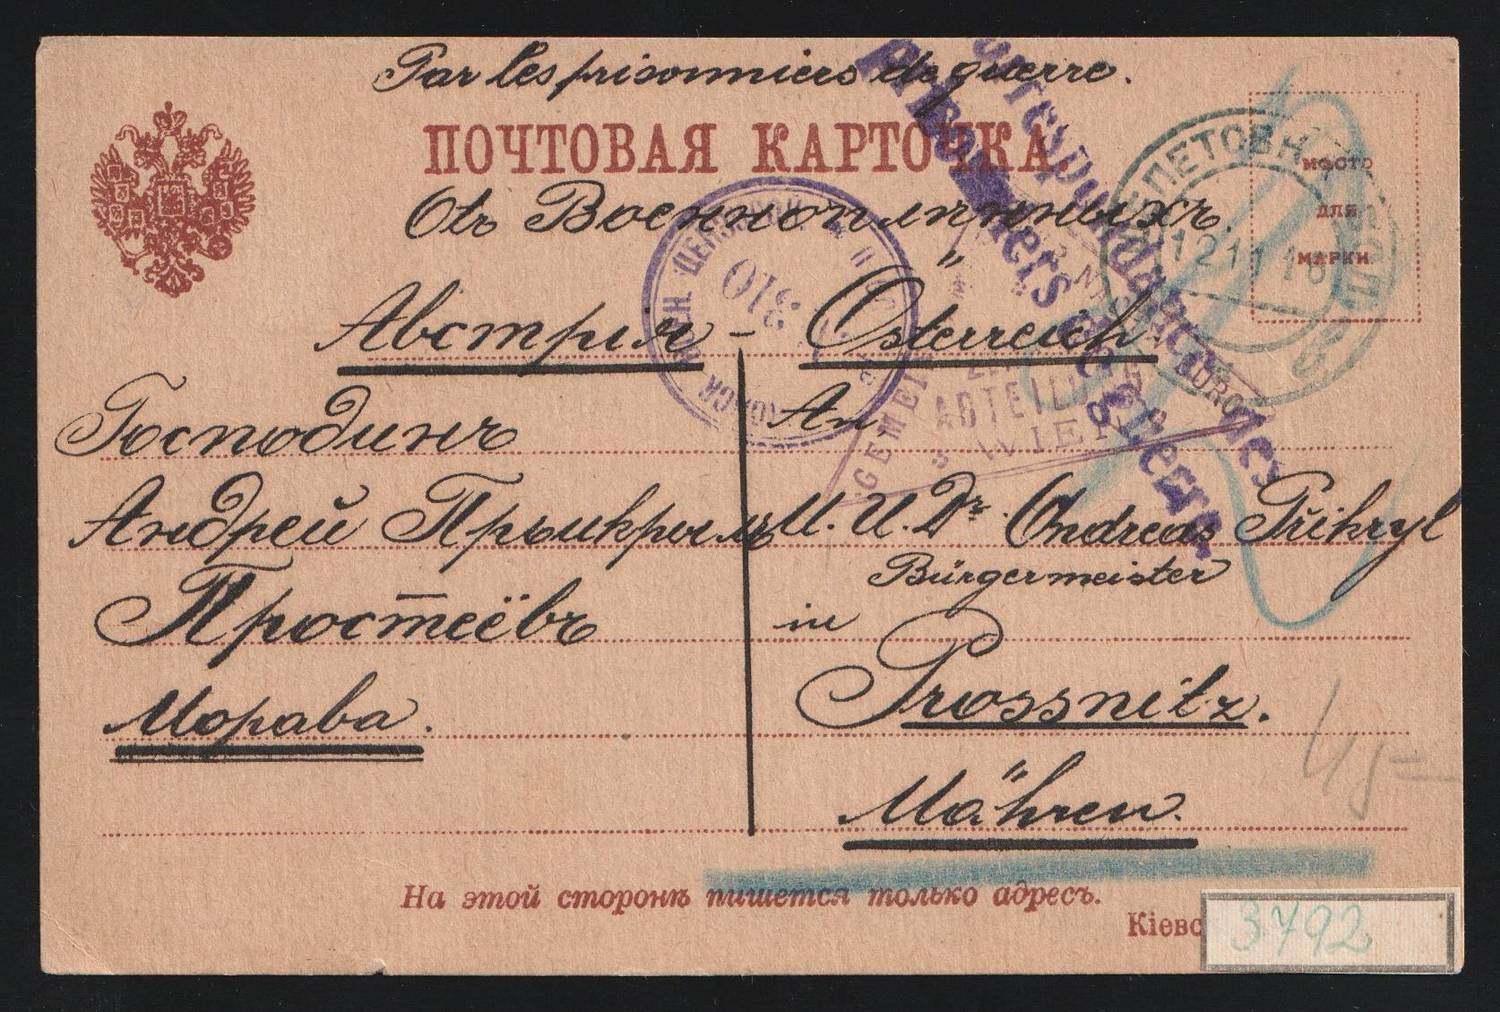 Par les prisonniers de guerre.
ПОЧТОВАЯ КАРТОЧКА.
Отъ Военноплѣнныхъ.
Австрія - Österreich
Господинъ
Андрей Прыикрылъ
Простеёвъ
Морава.
An
U. U. Dr. Andreas Přikryl
Bürgermeister
in
Prossnitz.
Mähren.
correspondances des
prisonniers de guerre
ВОЕН. ЦЕНЗУРОЙ
310
ШЕПЕТОВКА
12 11 16
МѢСТО
ДЛЯ
МАРКИ
GEMEIN
ABTEILUNG
WIEN
На этой сторонѣ пишется только адресъ.
Кіевс
3792